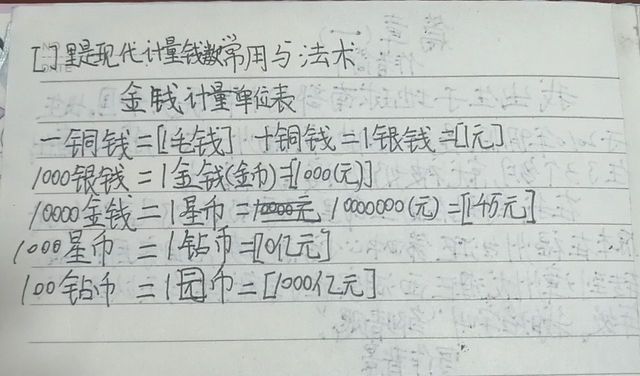 [ ]里是现代计量钱数常用与法术
金钱计量单位表
一铜钱=[1毛钱] 十铜钱=1银钱=[1元]
1000银钱=1金钱(金币)=[1000(元)]
10000金钱=1星币=10000元 10000000(元)=[1千万元]
1000星币=1钻币=[10亿元]
100钻币=1园币=[1000亿元]